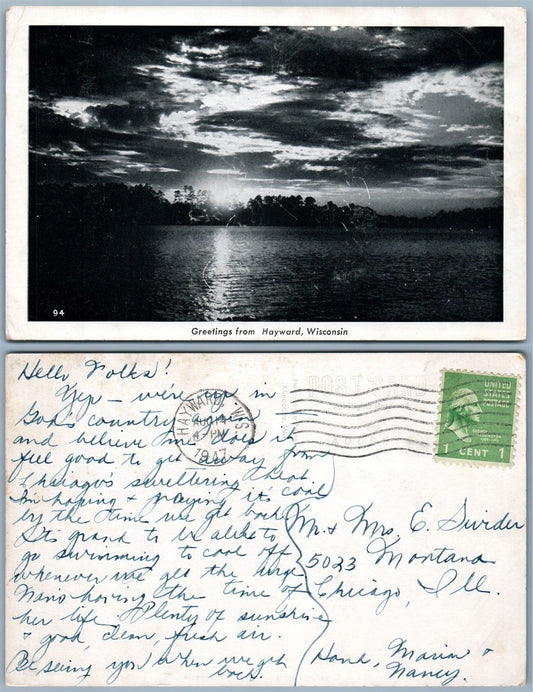 94
Greetings from Hayward, Wisconsin
Hello Folks!
Yep – we're up in
God's country again –
and believe me does it
feel good to get away from
Chicago's sweltering heat
Am hoping & praying it's cool
by the time we get back
It's grand to be able to
go swimming to cool off
whenever we get the urge
Nino having the time of
her life. Plenty of sunshine
& good, clean, fresh air.
Be seeing you when we get
back.
HAYWARD WIS.
AUG 14
4 - PM
1947
POST
UNITED
STATES
POSTAGE
1 CENT 1
Mr. & Mrs. E. Divider
5023 Montana
Chicago, Ill.
Hank, Marian &
Nancy.